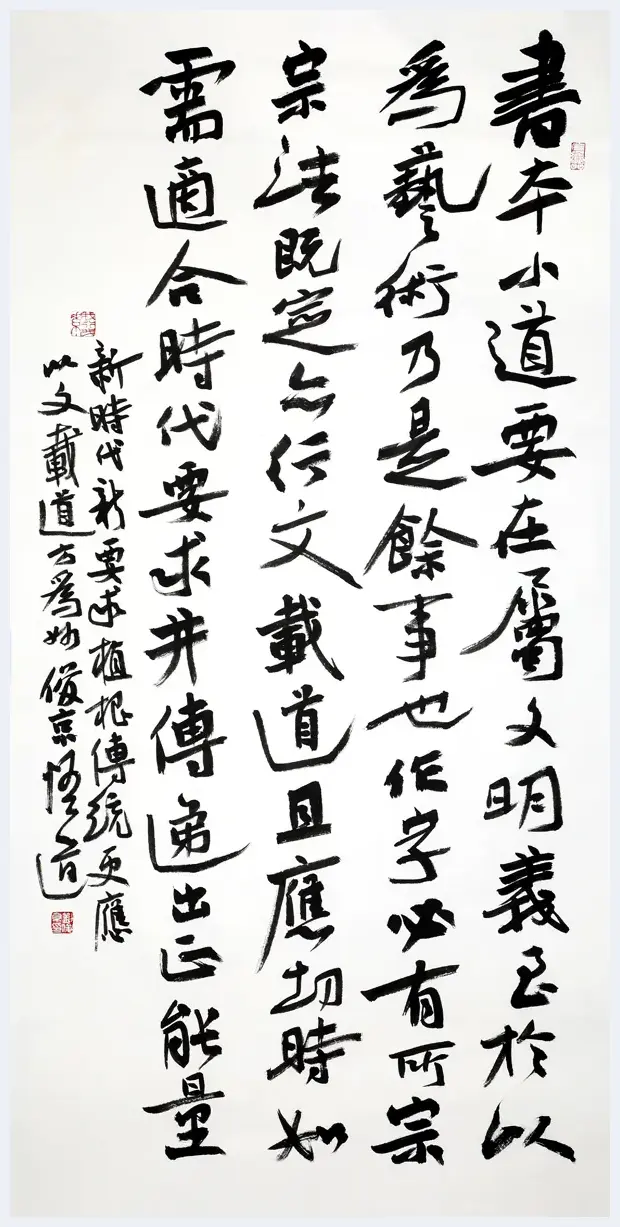 書本小道要在屬文明義至於以
為藝術乃是餘事也作字必有所宗
宗法既定亦行文載道且應切時如
需適合時代要求并傳遞出正能量
新時代新要求植根傳統更應
以文載道方為妙俊京悟道